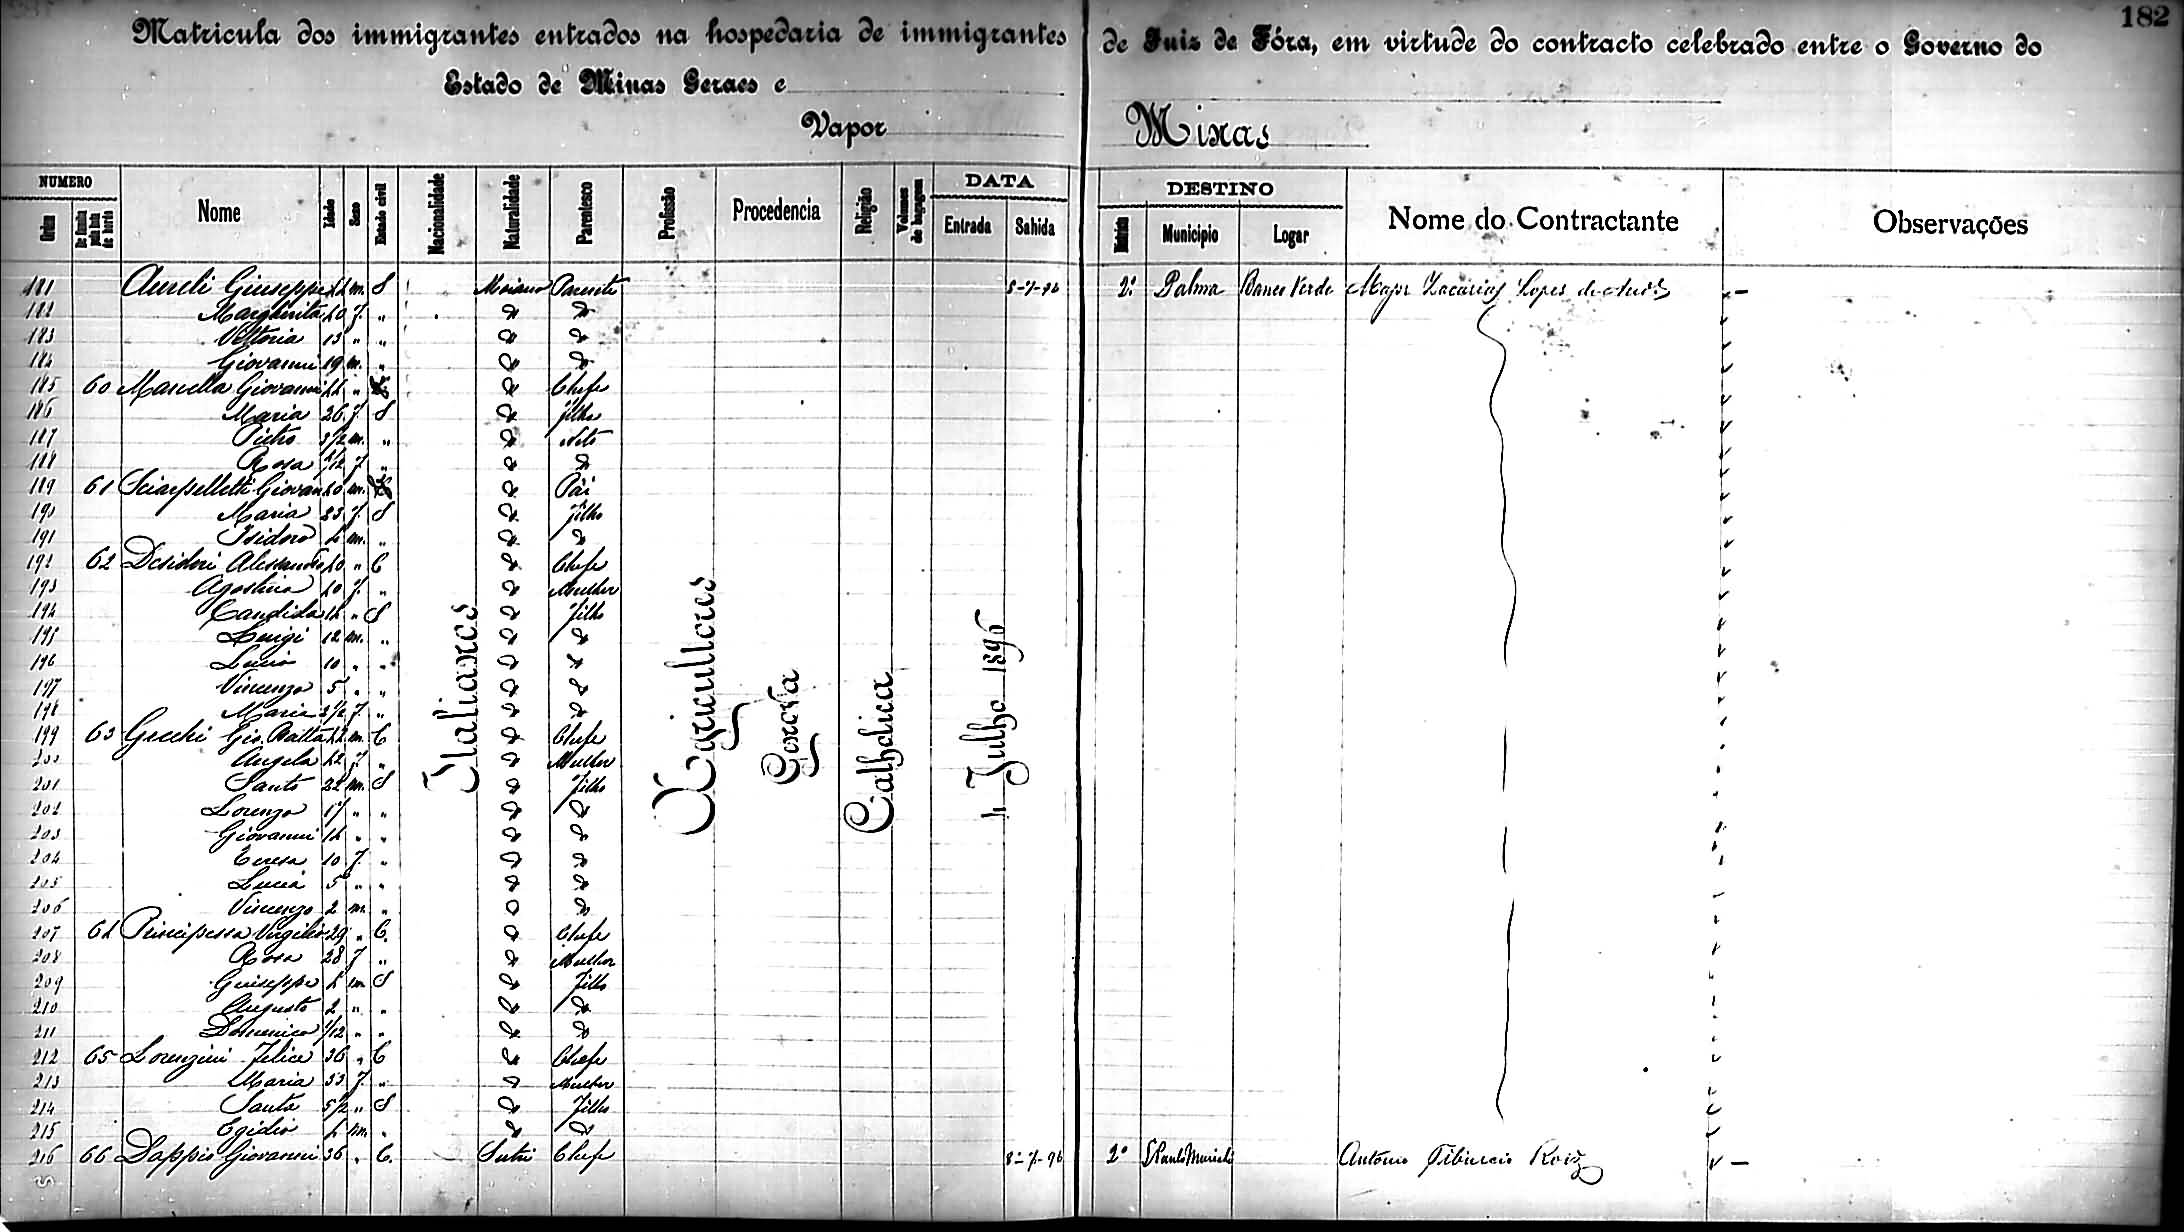 182
Matricula dos immigrantes entrados na hospedaria de immigrantes de Juiz de Fóra, em virtude do contracto celebrado entre o Governo do
Estado de Minas Geraes e
Vapor Minas
NUMERO Nome Idade Sexo Estado civil Nacionalidade Naturalidade Parentesco Profissão Procedencia Religião Volumes de bagagem DATA DESTINO Nome do Contractante Observações
Ordem Entrada Sahida Districto Municipio Logar
Italianos Agricultores Genova Catholica 4 Julho 1896
181 Aureli Giuseppe 44 m. S Parente 8-7-96 2º Palma Banco Verde Major Zacarias Lopes de
182 Margherita 40 f. " "
183 Vittoria 13 " "
184 Giovanni 19 m. "
185 60 Giovanni 44 " Chefe
186 Maria 26 f. S filha
187 Pietro m. " Neto
188 Rosa f. "
189 61 Sciarpelletti Giovan 40 m. Pai
190 Maria 23 f. S filho
191 Isidoro 4 m. "
192 62 Desideri Alessandro 40 " C Chefe
193 Agostina 40 f. " Mulher
194 Candida 14 " S filho
195 Luigi 12 m. "
196 Lucio 10 " "
197 Vincenzo 5 " "
198 Maria f. "
199 63 Gio. Batta 44 m. C Chefe
200 Angela 42 f. " Mulher
201 Santo 22 m. S filho
202 Lorenzo 17 " "
203 Giovanni 14 " "
204 Teresa 10 f. "
205 Lucia 5 " "
206 Vincenzo 2 m. "
207 64 Principessa Virgilio 29 " C. Chefe
208 Rosa 28 f " Mulher
209 Giuseppe 4 m S filho
210 Augusto 2 " "
211 Domenico 1/12 " "
212 65 Lorenzini Felice 36 " C Chefe
213 Maria 33 f. " Mulher
214 Santa " S filho
215 Egidio 4 m. "
216 66 Dappio Giovanni 36 " C. Sutri Chefe 8-7-96 2º S Paulo Muriahé Antonio Tiburcio Roiz